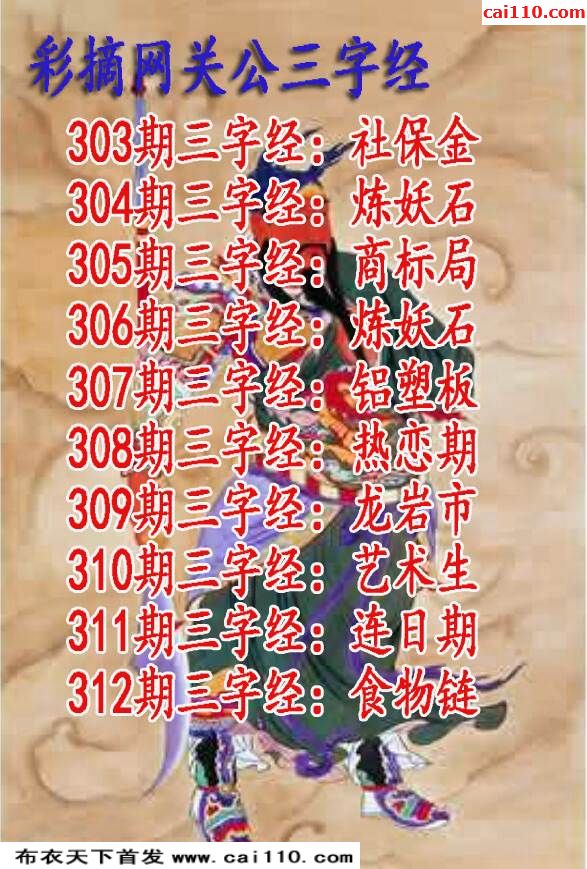 cai110.com
彩摘网关公三字经
303期三字经：社保金
304期三字经：炼妖石
305期三字经：商标局
306期三字经：炼妖石
307期三字经：铝塑板
308期三字经：热恋期
309期三字经：龙岩市
310期三字经：艺术生
311期三字经：连日期
312期三字经：食物链
布衣天下首发 www.cai110.com